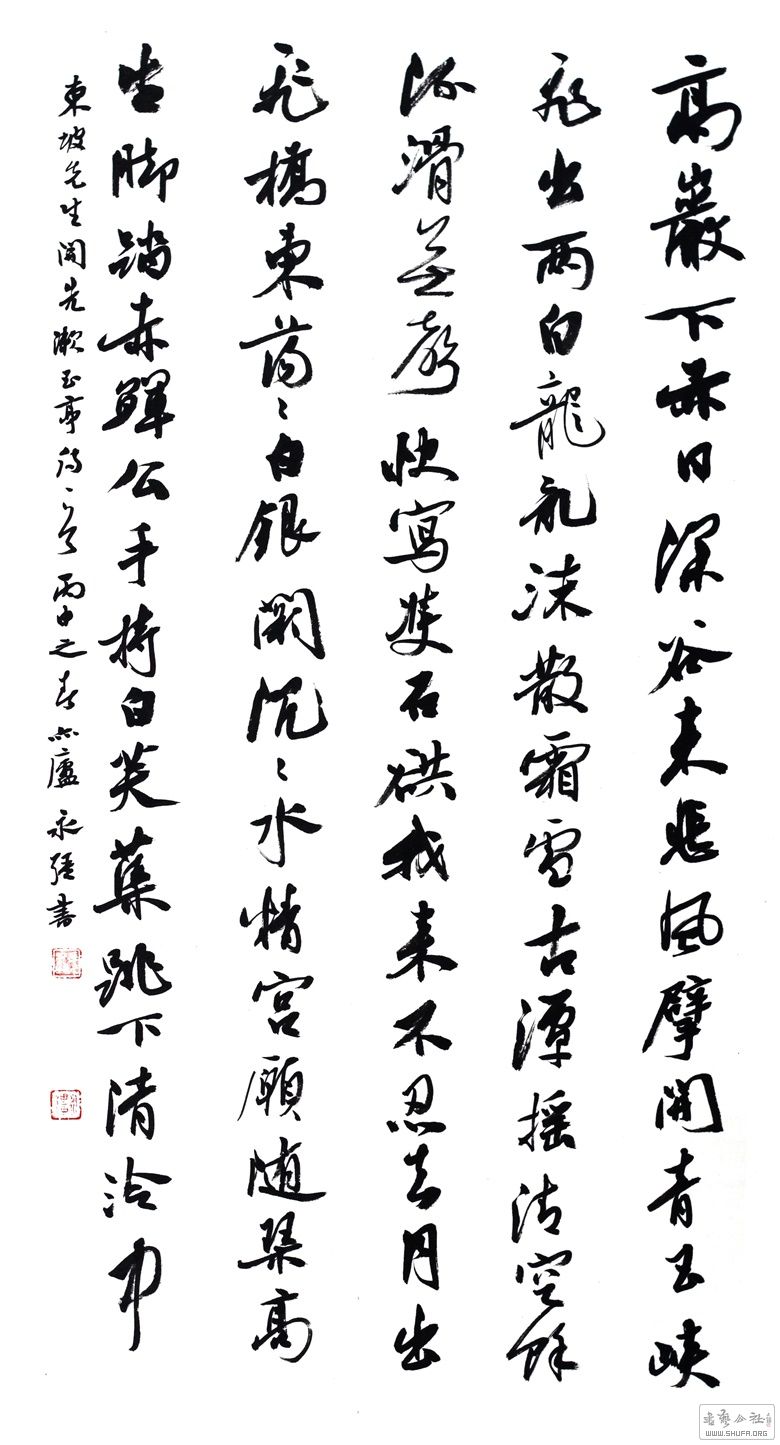 高巖下赤日深谷來悲風擘開青玉峽
飛出兩白龍亂沫散霜雪古潭搖清空餘
流滑無聲快寫雙石硔我來不忍去月出
飛橋東蕩〻白銀闕沉〻水精宮願隨琴高
生脚踏赤鯶公手持白芙蕖跳下清泠中
東坡先生開先漱玉亭詩一首 丙申之春 廬永強書
WWW.SHUFA.ORG